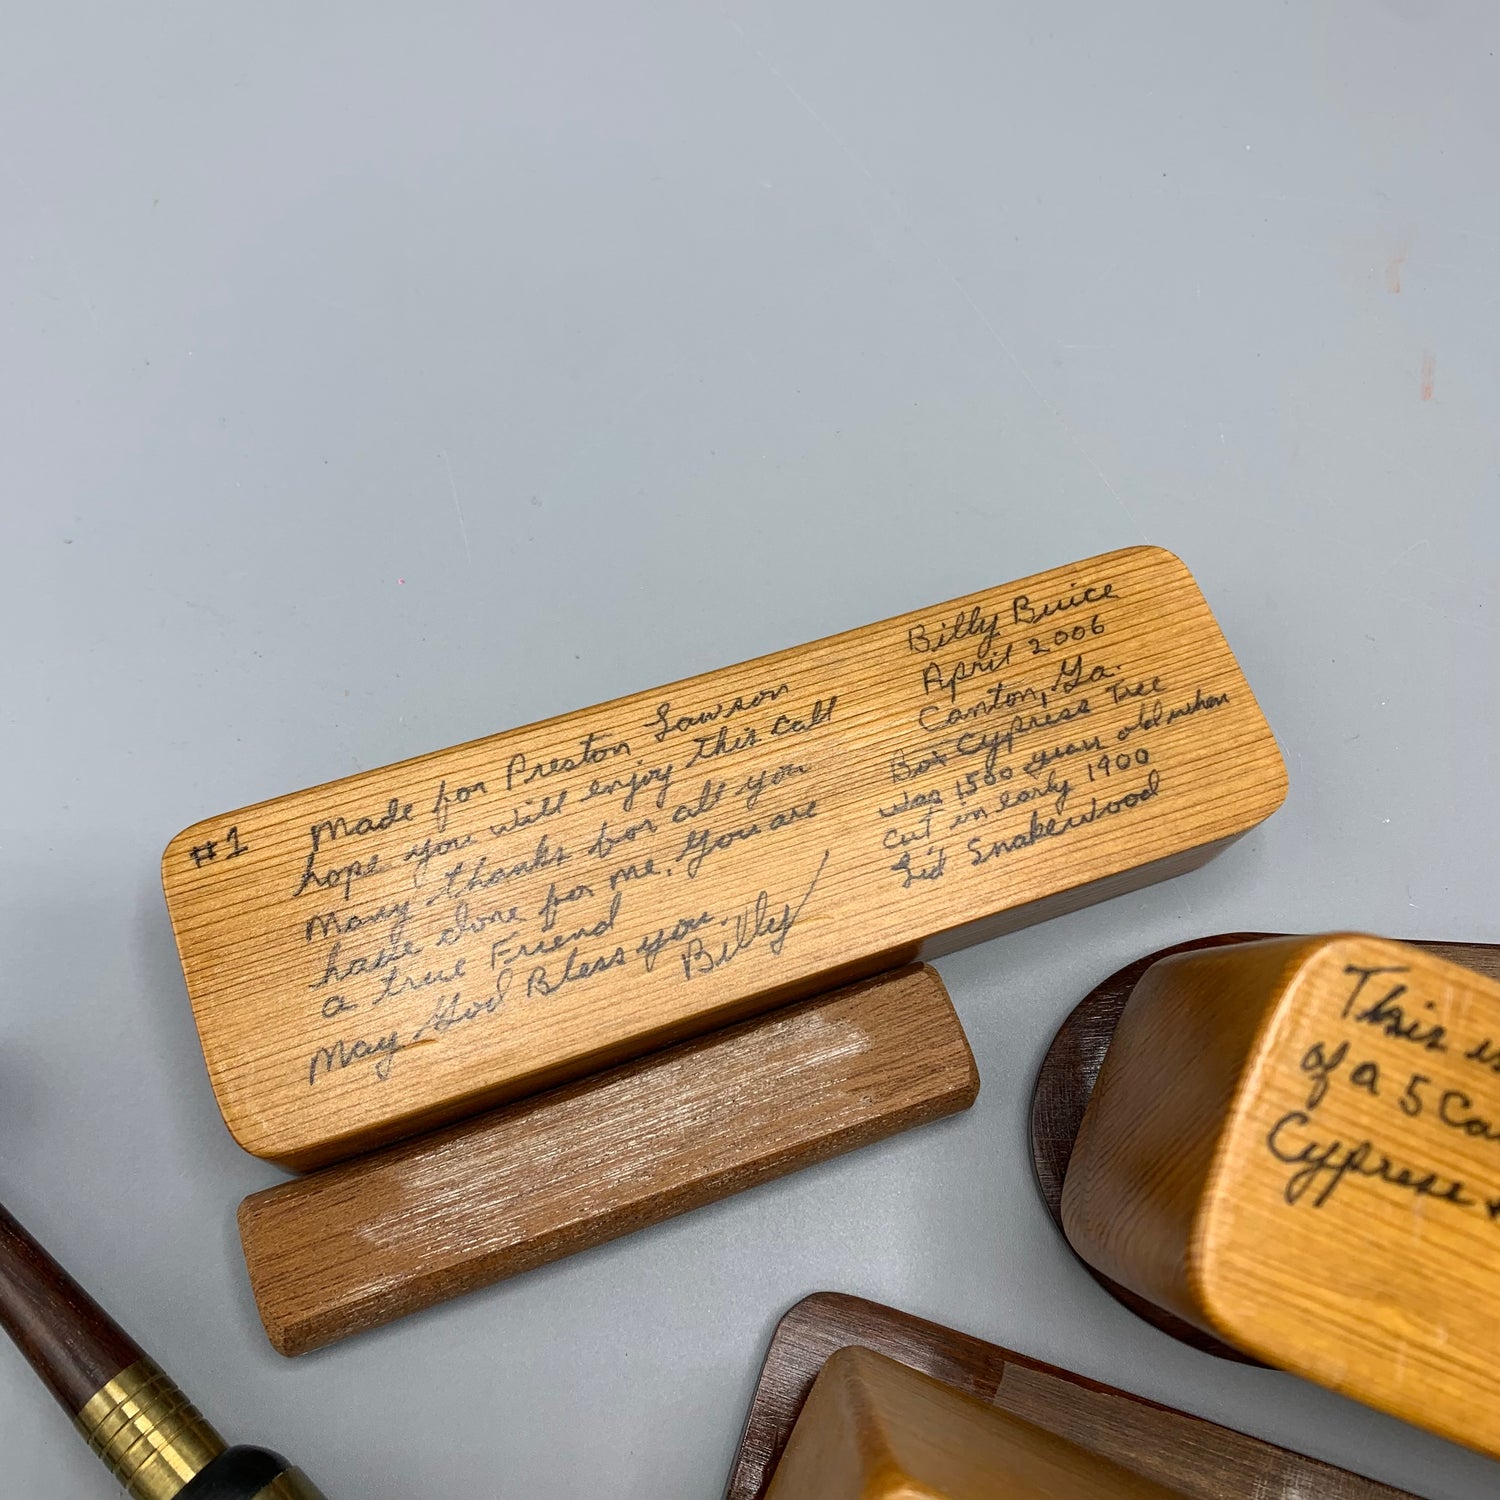 #1
Made for Preston Lawson
hope you will enjoy this call
Many thanks for all you
have done for me. You are
a true Friend
May God Bless you.
Billy
Billy Buice
April 2006
Canton, Ga.
Box Cypress Tree
was 1500 years old when
cut in early 1900
Lid Snakewood
This is
of a 5 Ca
Cypress